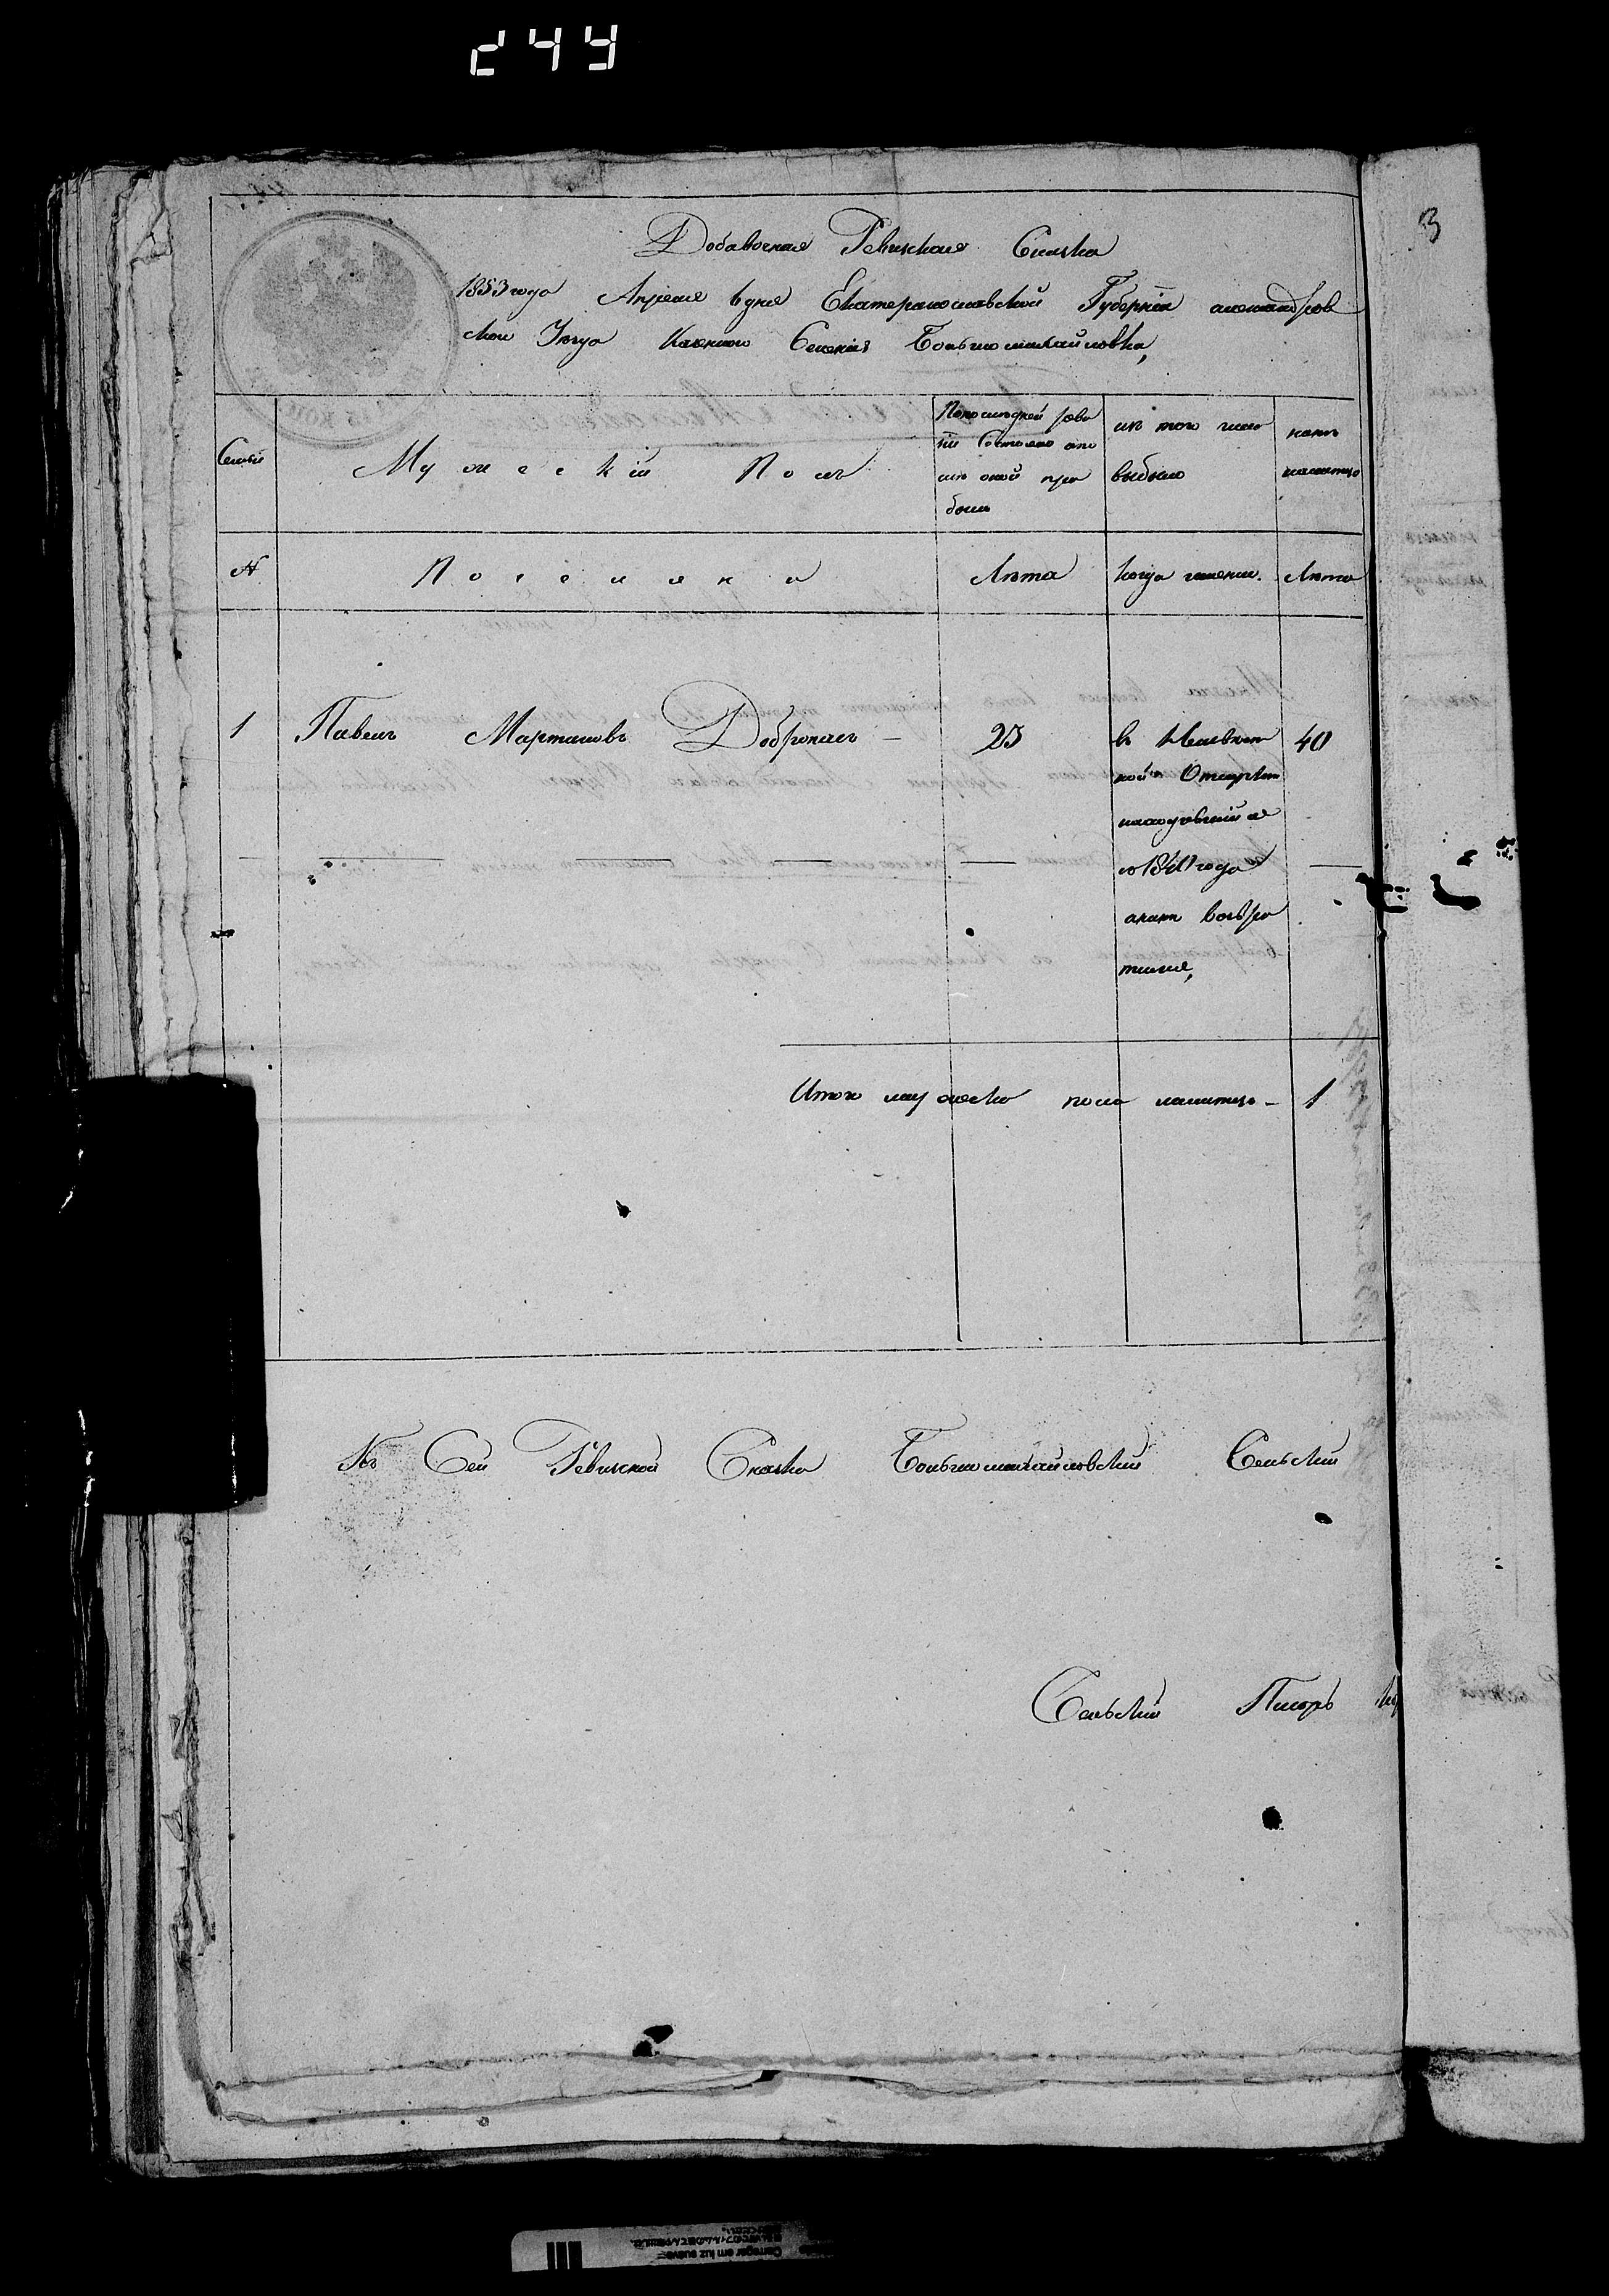 244
3
Добавочная Ревизкая Сказка
1853 года Апреля 6 дня Екатеринославской Губернiи александров
ской Уезда Казенного Селенiя Большомихайловка,
Семьи
Мужескiй Полъ
По последней реви
зiи состояло или
после оной при
было
изъ того числа
выбыло
ныне
налицо
№
Поселяно
Лета
когда именно.
Лета
1 Павелъ Мартиновъ Добронасъ — 25
в
ной Отлучки
находившийся
с 1840 года
возвра
тился,
40
Итого мужеско пола налицо — 1
Къ Сей Ревиской Сказки Большомихайловский Сельский
Сельский Писарь